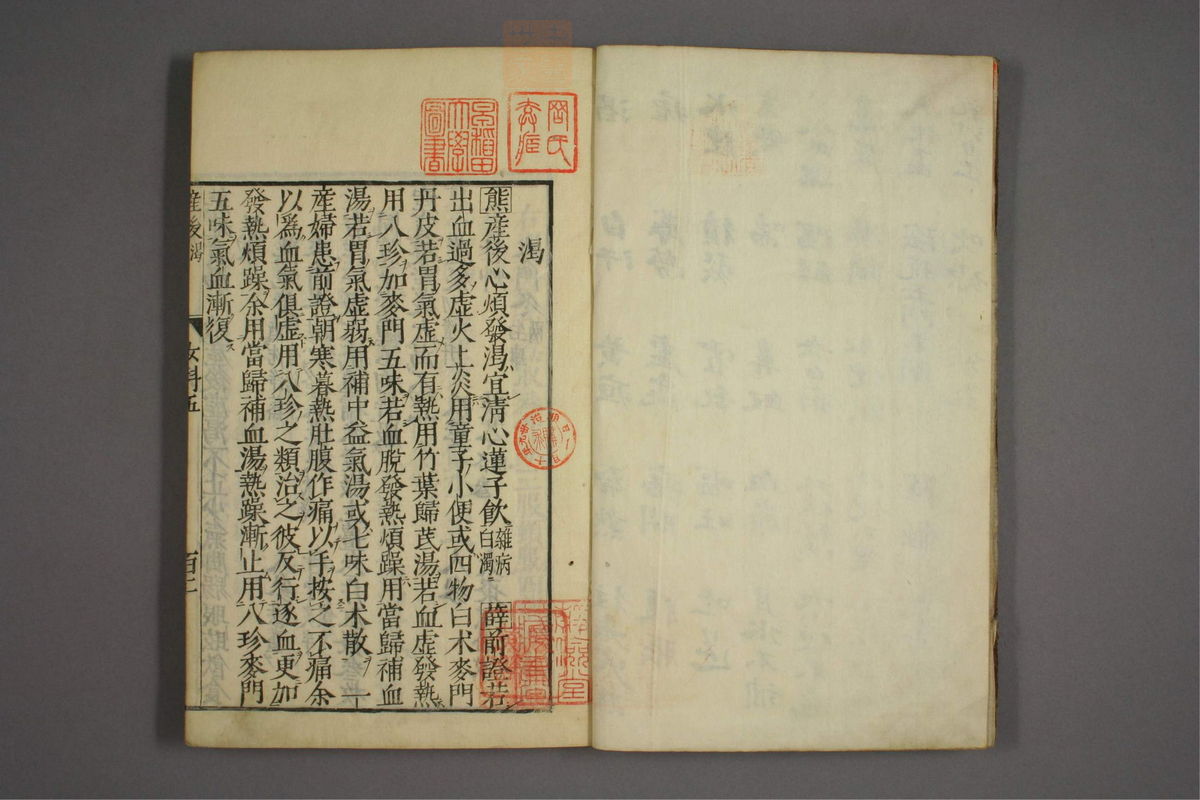 渇
熊産後心煩發渇宜清心蓮子飲雜病白濁薛前證若
出血過多虛火上炎用童子小便或四物白朮麥門
丹皮若胃氣虛而有熱用竹葉歸芪湯若血虛發熱
用八珍加麥門五味若血脫發熱煩躁用當歸補血
湯若胃氣虛弱用補中益氣湯或七味白朮散一
産婦患前證朝寒暮熱肚腹作痛以手按之不痛余
以爲血氣俱虛用八珍之類治之彼反行逐血更加
發熱煩躁余用當歸補血湯熱躁漸止用八珍麥門
五味氣血漸復
産後渇
女科五
早稻田大學圖書